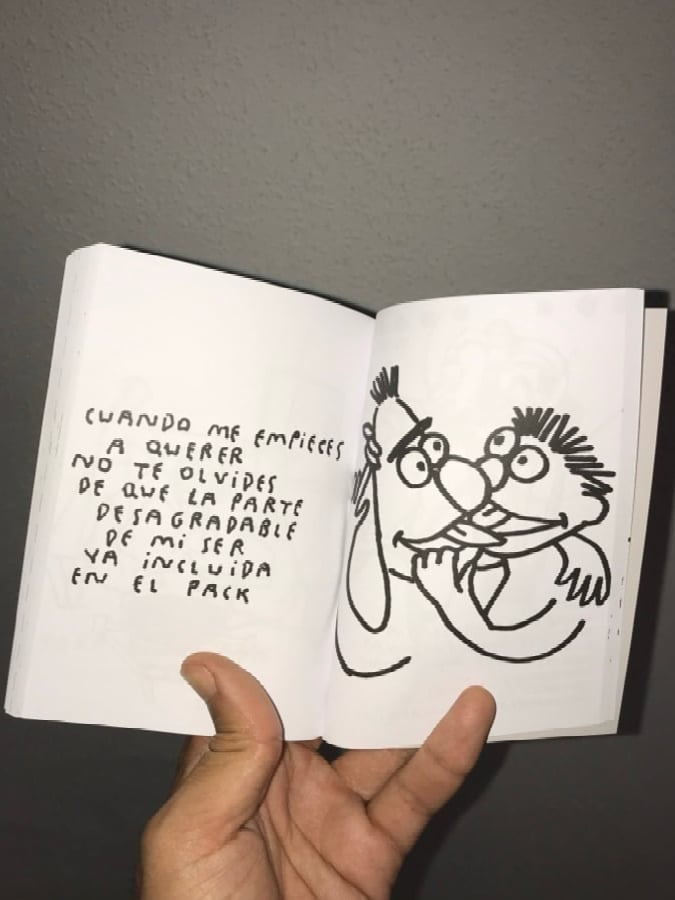 CUANDO ME EMPIECES
A QUERER
NO TE OLVIDES
DE QUE LA PARTE
DESAGRADABLE
DE Mi SER
VA iNCLUiDA
EN EL PACK